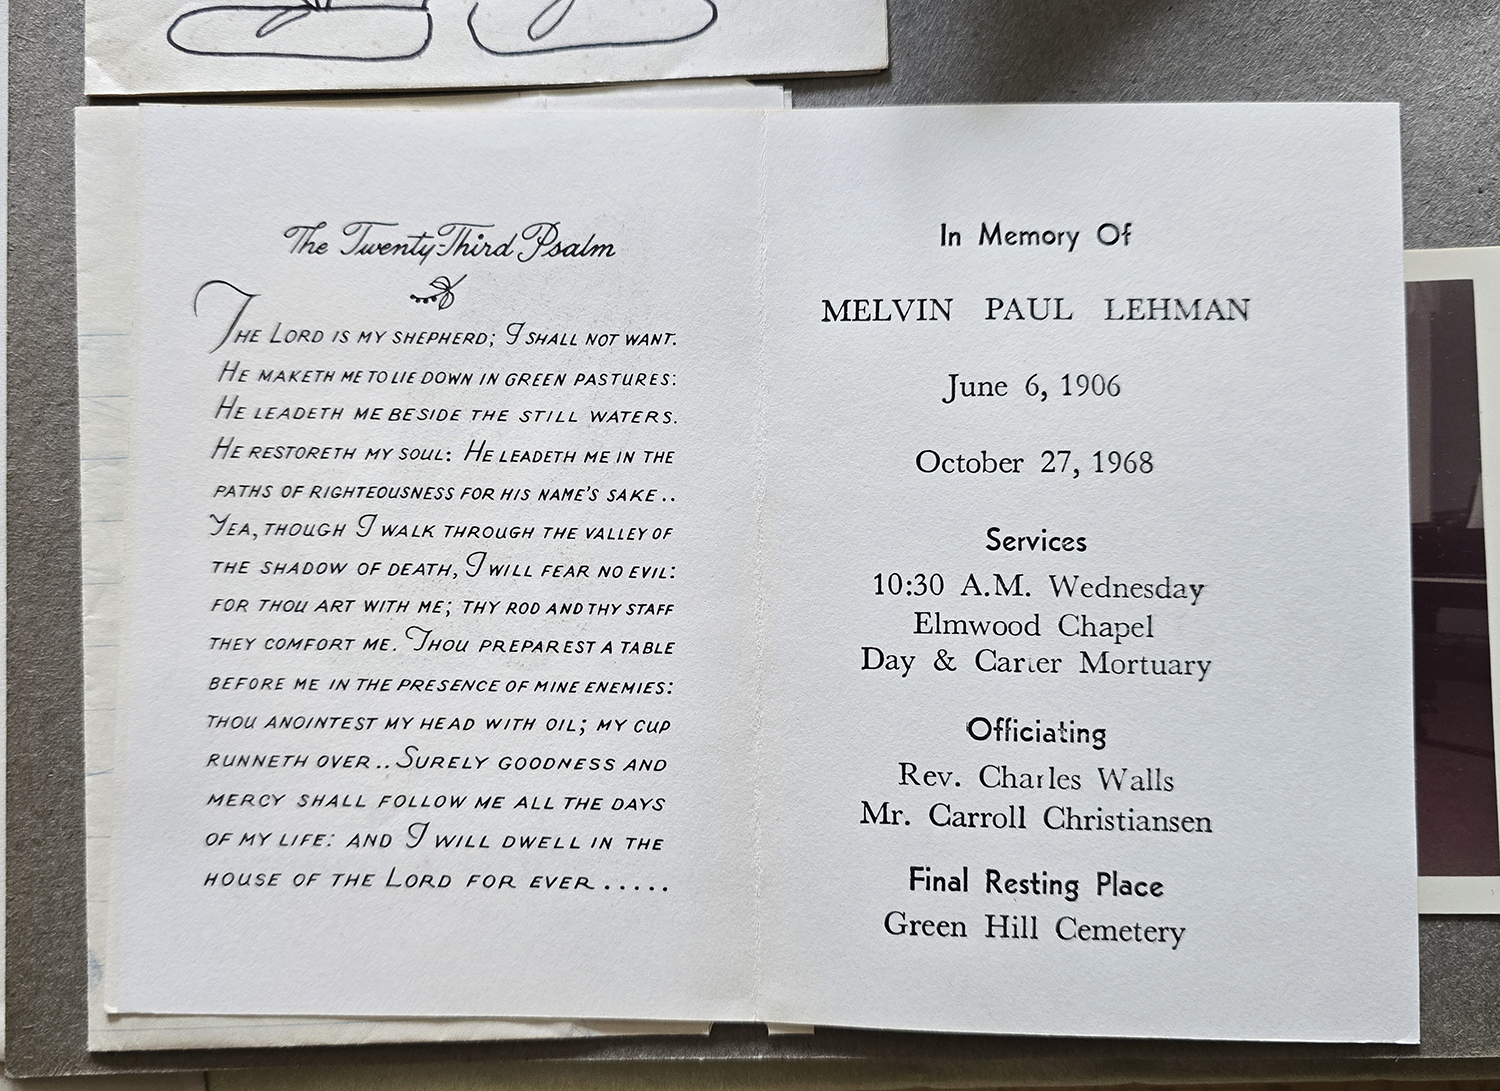 The Twenty-Third Psalm
The Lord is my shepherd; I shall not want.
He maketh me to lie down in green pastures:
He leadeth me beside the still waters.
He restoreth my soul: He leadeth me in the
paths of righteousness for his name's sake..
Yea, though I walk through the valley of
the shadow of death, I will fear no evil:
for thou art with me; thy rod and thy staff
they comfort me. Thou preparest a table
before me in the presence of mine enemies:
thou anointest my head with oil; my cup
runneth over.. Surely goodness and
mercy shall follow me all the days
of my life: and I will dwell in the
house of the Lord for ever.....
In Memory Of
MELVIN PAUL LEHMAN
June 6, 1906
October 27, 1968
Services
10:30 A.M. Wednesday
Elmwood Chapel
Day & Carter Mortuary
Officiating
Rev. Charles Walls
Mr. Carroll Christiansen
Final Resting Place
Green Hill Cemetery